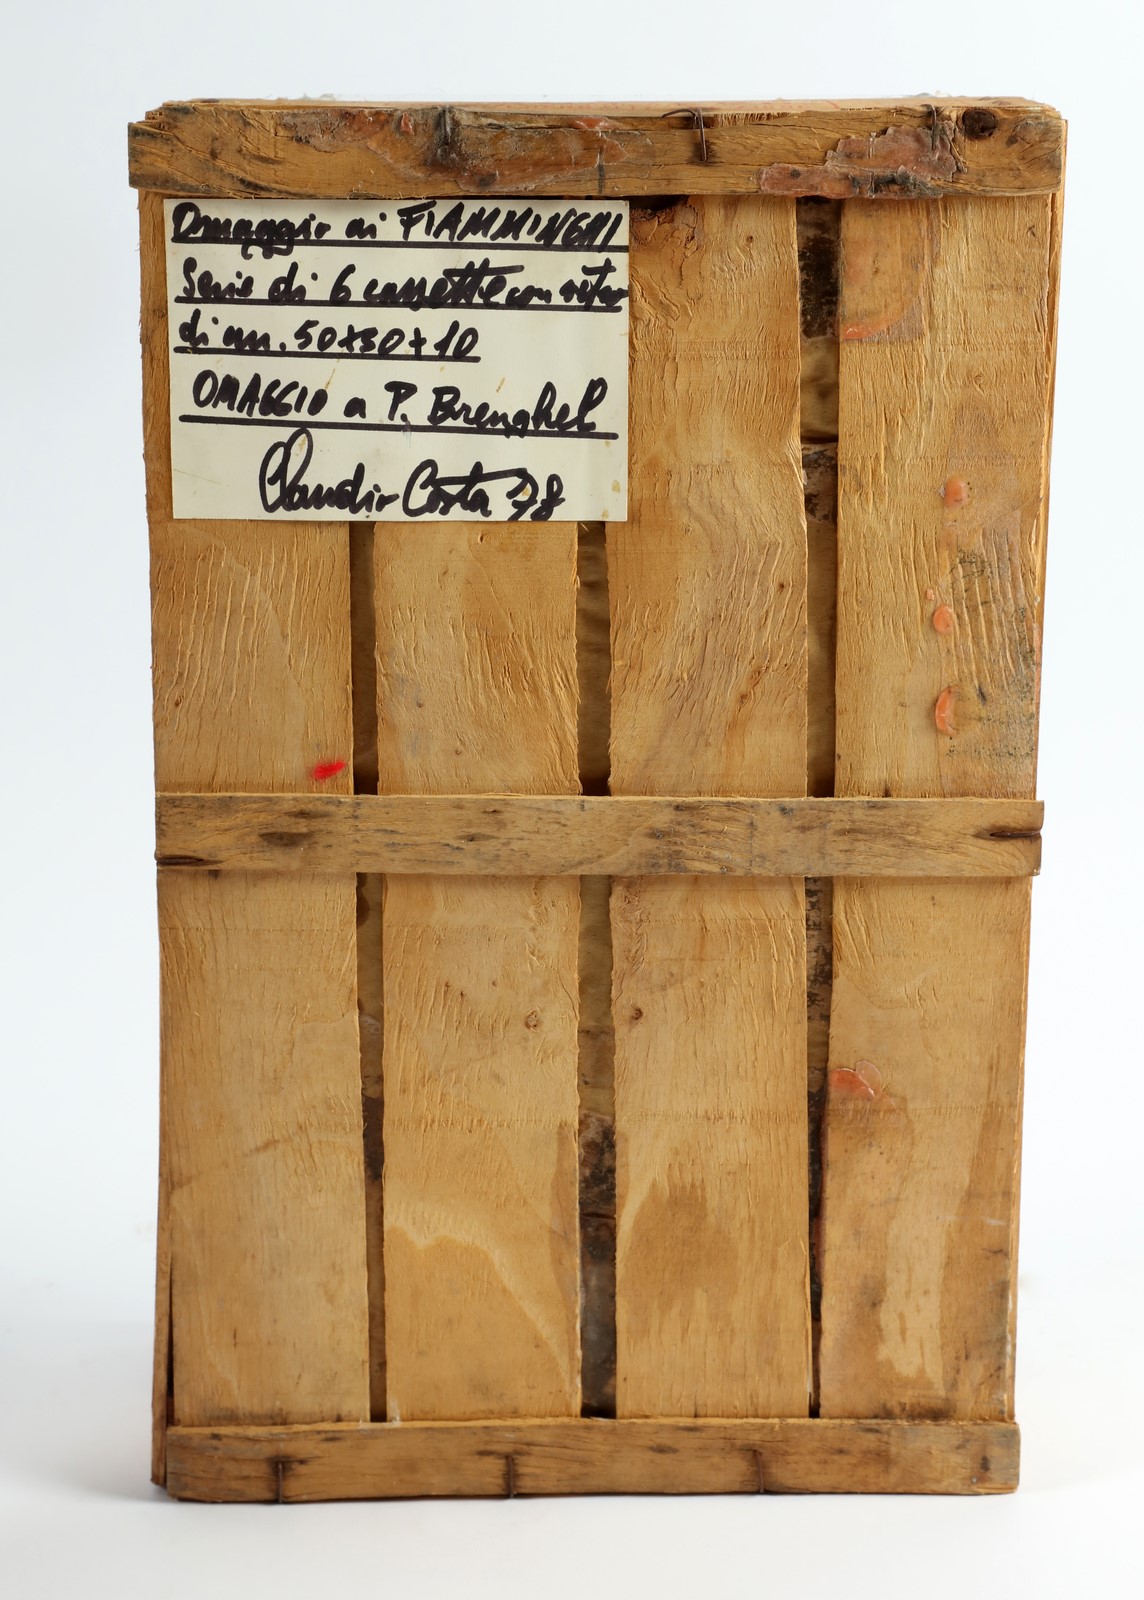 Omaggio ai FIAMMINGHI
Serie di 6 cassette con vetro
di cm. 50x30x10
OMAGGIO a P. Brenghel
Claudio Costa 78